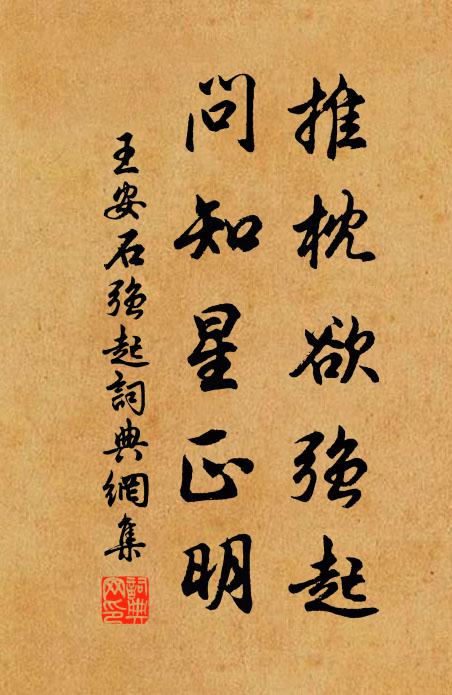 推枕欲強起
問知星正明
王安石強起詞典網集
詞典網印